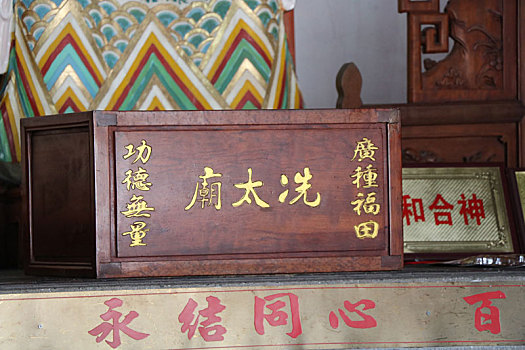 廣種福田
冼太廟
功德無量
和合神
永結同心 百